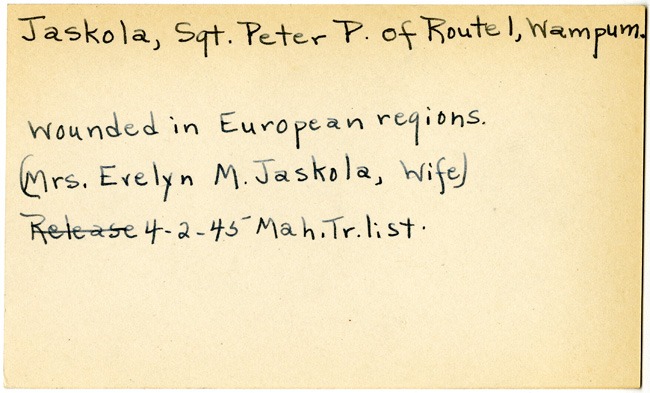 Jaskola, Sgt. Peter P. of Route 1, Wampum.
Wounded in European regions.
(Mrs. Evelyn M. Jaskola, Wife)
Release 4-2-45 Mah. Tr. list.